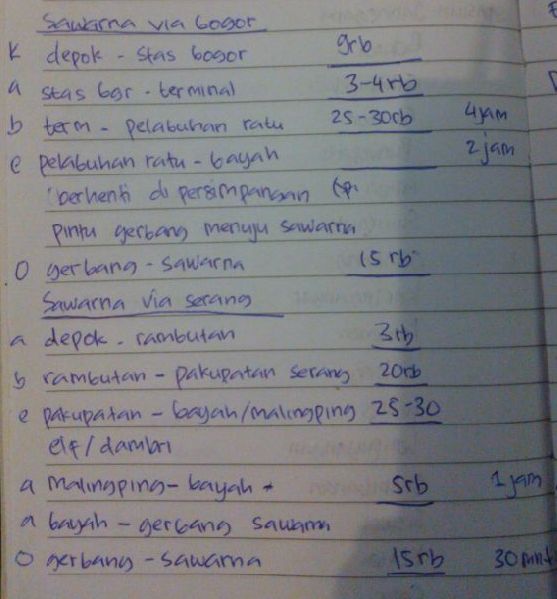 Sawarna via bogor
K depok - stas bogor 9rb
a stas bgr - terminal 3-4rb
b term - pelabuhan ratu 25-30rb 4jam
e pelabuhan ratu - bayah 2jam
berhenti di persimpangan
pintu gerbang menuju sawarna
O gerbang - sawarna 15rb
Sawarna via serang
a depok - rambutan 3rb
b rambutan - pakupatan serang 20rb
e pakupatan - bayah/malingping 25-30
elf/damri
a malingping - bayah 5rb 1jam
a bayah - gerbang sawarna
O gerbang - sawarna 15rb 30mnt